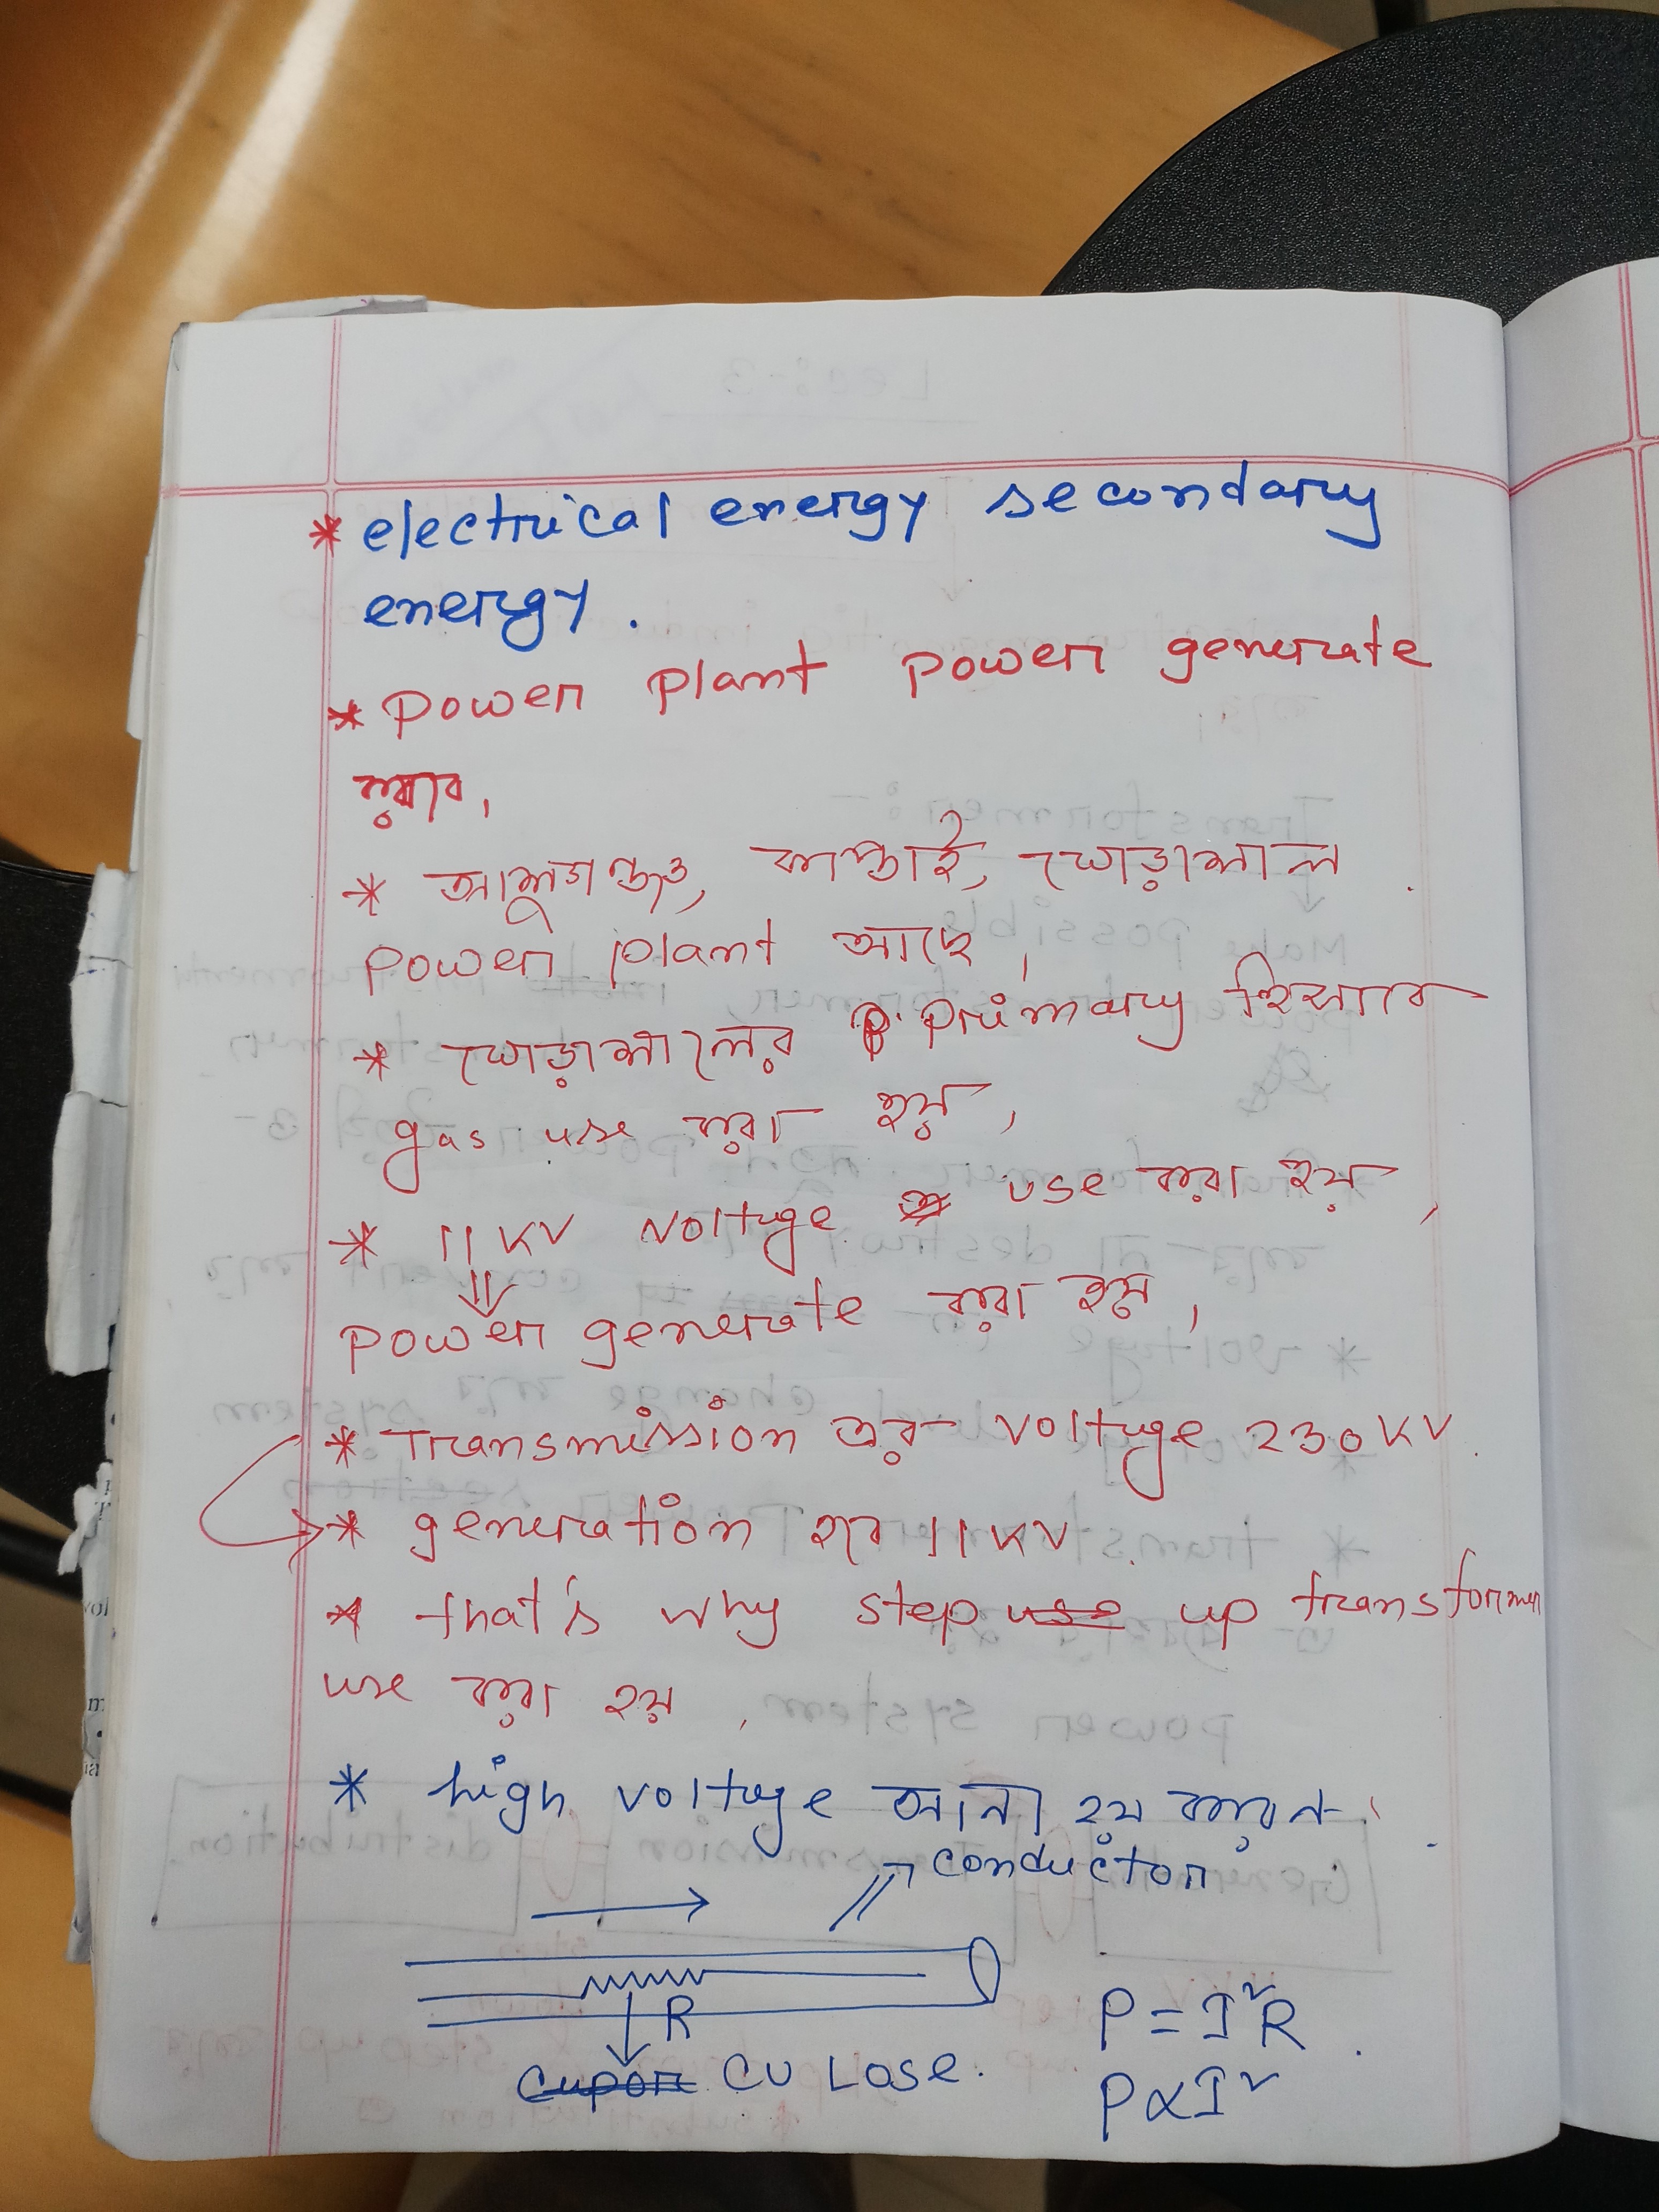 * electrical energy secondary
energy.
* power plant power generate
করবে।
* আশুগঞ্জ, কাপ্তাই, ঘোড়াশাল
power plant আছে।
* ঘোড়াশালের primary হিসাবে
gas use করা হয়,
* 11 KV voltage use করা হয়,
power generate করা হয়,
* Transmission এর voltage 230 KV.
* generation হবে 11 KV.
* that's why step use up transformer
use করা হয়,
* high voltage আনা হয় কারন
conductor
R
P = I²R
Cupor CU Lose.
P ∝ I²